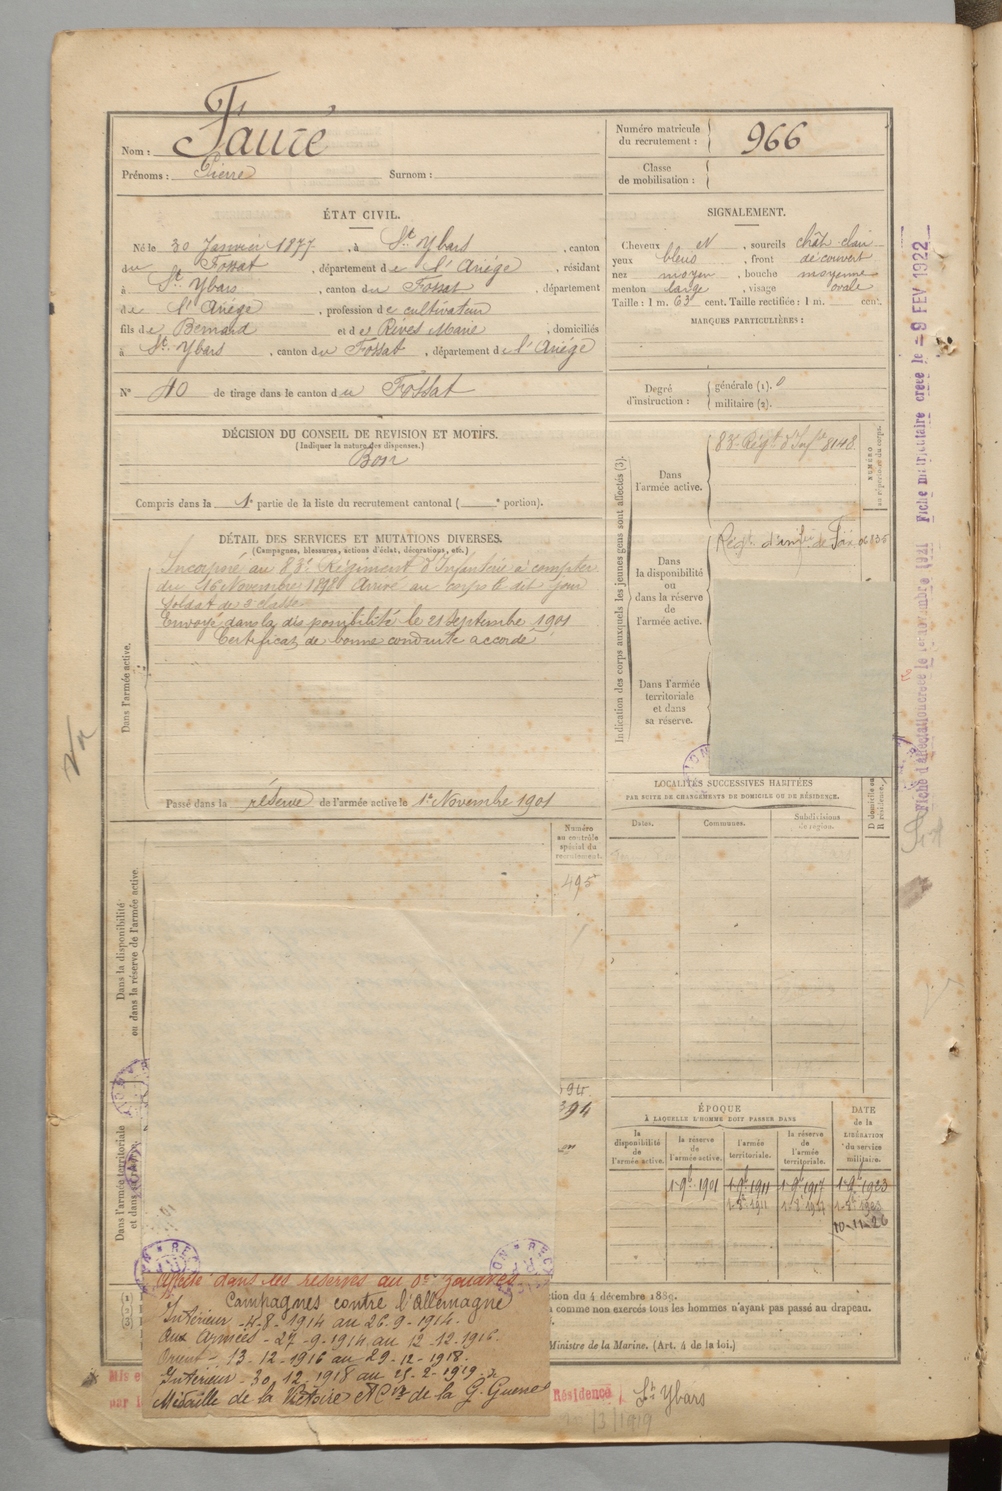 Nom : Fauré
Prénoms : Pierre Surnom :
Numéro matricule
du recrutement : 966
Classe
de mobilisation :
ÉTAT CIVIL.
Né le 30 Janvier 1877, à St Ybars, canton
du Fossat, département de l'Ariége, résidant
à St Ybars, canton du Fossat, département
de l'Ariége, profession de cultivateur
fils de Bernard et de Rèves Marie, domiciliés
à St Ybars, canton du Fossat, département de l'Ariége
N° 40 de tirage dans le canton du Fossat
SIGNALEMENT.
Cheveux N, sourcils chât clair
yeux bleus, front découvert
nez moyen, bouche moyenne
menton large, visage ovale
Taille : 1 m. 63 cent. Taille rectifiée : 1 m. cent.
MARQUES PARTICULIÈRES :
Degré
d'instruction :
générale (1). 0
militaire (2).
DÉCISION DU CONSEIL DE REVISION ET MOTIFS.
(Indiquer la nature des dispenses.)
Bon
Compris dans la 1e partie de la liste du recrutement cantonal ( e portion).
DÉTAIL DES SERVICES ET MUTATIONS DIVERSES.
(Campagnes, blessures, actions d'éclat, décorations, etc.)
Incorporé au 83e Régiment d'Infanterie à compter
du 16 Novembre 1898 Arrivé au corps le dit jour
soldat de 2e classe
Envoyé dans la disponibilité le 21 Septembre 1901
Certificat de bonne conduite accordé
Dans l'armée active.
Passé dans la réserve de l'armée active le 1er Novembre 1901
Indication des corps auxquels les jeunes gens sont affectés (3).
NUMÉRO
au répertoire du corps.
Dans
l'armée active.
83e Régt d'Infie 8148
Dans
la disponibilité
ou
dans la réserve
de
l'armée active.
Régt d'infie de Foix
Dans l'armée
territoriale
et dans
sa réserve.
LOCALITÉS SUCCESSIVES HABITÉES
PAR SUITE DE CHANGEMENTS DE DOMICILE OU DE RÉSIDENCE.
Dates. Communes. Subdivisions
de région.
D domicile ou
R résidence.
Numéro
au contrôle
spécial du
recrutement.
495
Dans la disponibilité
ou dans la réserve de l'armée active.
Dans l'armée territoriale
394
ÉPOQUE
À LAQUELLE L'HOMME DOIT PASSER DANS
la
disponibilité
de
l'armée active.
la réserve
de
l'armée active.
l'armée
territoriale.
la réserve
de
l'armée
territoriale.
DATE
de la
LIBÉRATION
du service
militaire.
1-9b 1901 1-9b 1911 1-9b 1917 1-9b 1923
1-8b 1911 1-8b 1917 1-8b 1923
10-11-26
dans les réserves au zouaves
Campagnes contre l'Allemagne
Intérieur - 4-8-1914 au 26-9-1914.
Aux Armées - 27-9-1914 au 12-12-1916.
Orient - 13-12-1916 au 29-12-1918.
Intérieur - 30-12-1918 au 25-2-1919.
Médaille de la Victoire de la G. Guerre
ction du 4 décembre 1889.
a comme non exercés tous les hommes n'ayant pas passé au drapeau.
Ministre de la Marine. (Art. 4 de la loi.)
Résidence St Ybars
/3/1919
Fiche d'affectation créée le 1er novembre 1921 Fiche matriculaire créée le - 9 FEV 1922
Vu